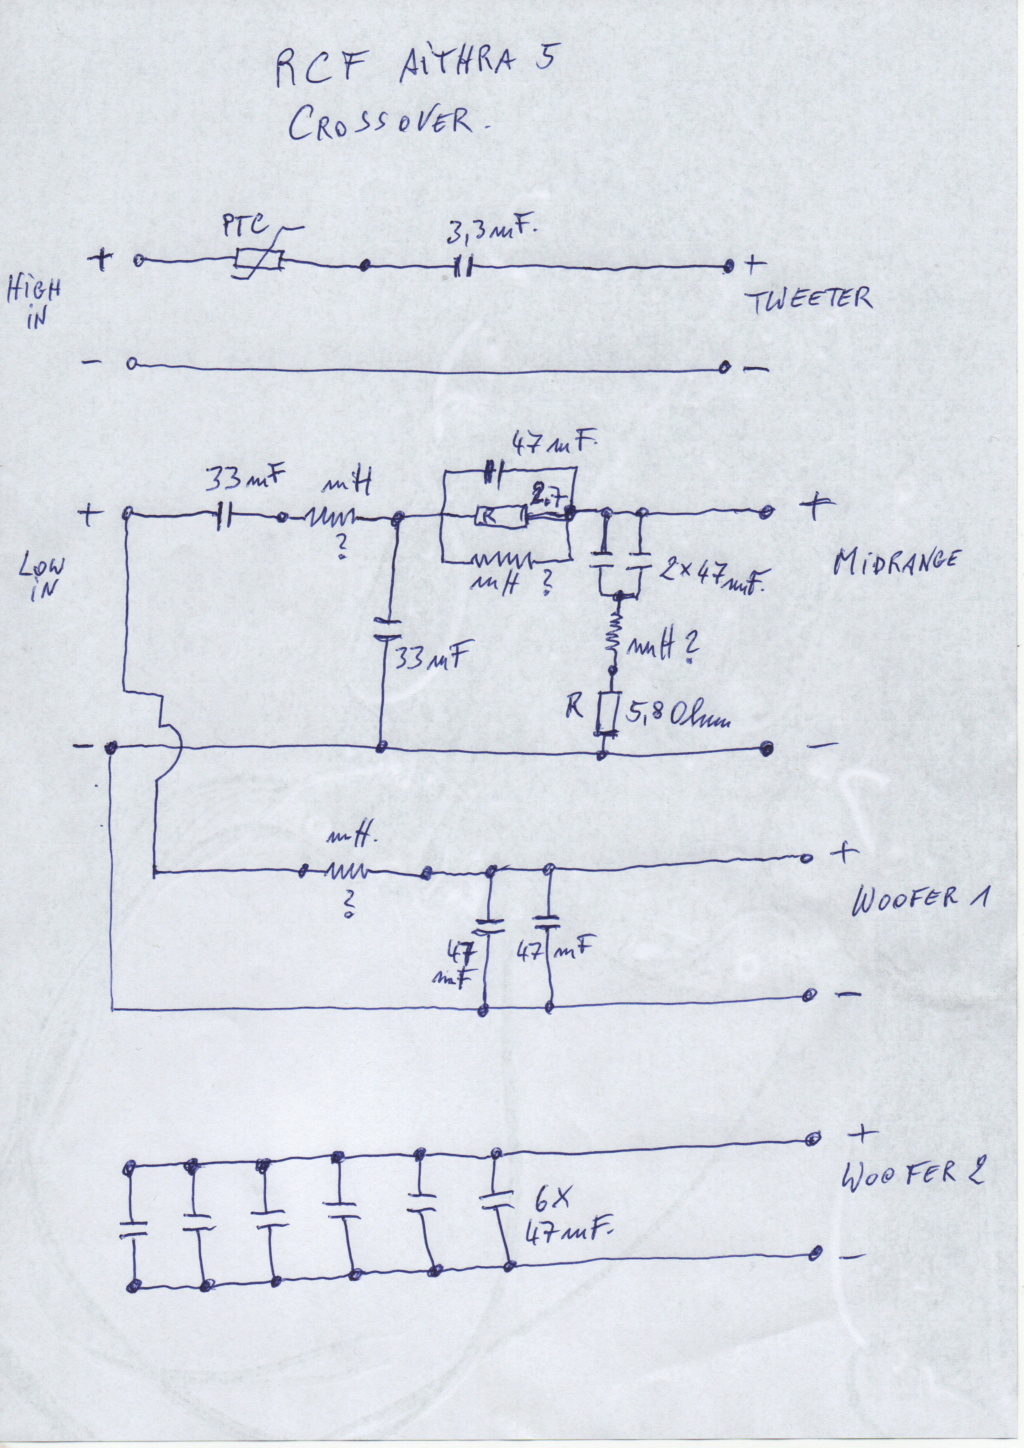 RCF AiTHRA 5
CROSSOVER.
PTC
3,3 mF.
+
+
HiGH
iN
TWEETER
-
-
47 mF.
33 mF
mH
2.7
R
+
+
?
LOW
iN
mH ?
2x47mF.
MiDRANGE
33 mF
mH ?
R
5,8 Ohm
-
-
mH.
?
+
WOOFER 1
47
mF
47 mF
-
+
WOOFER 2
6X
47 mF.
-